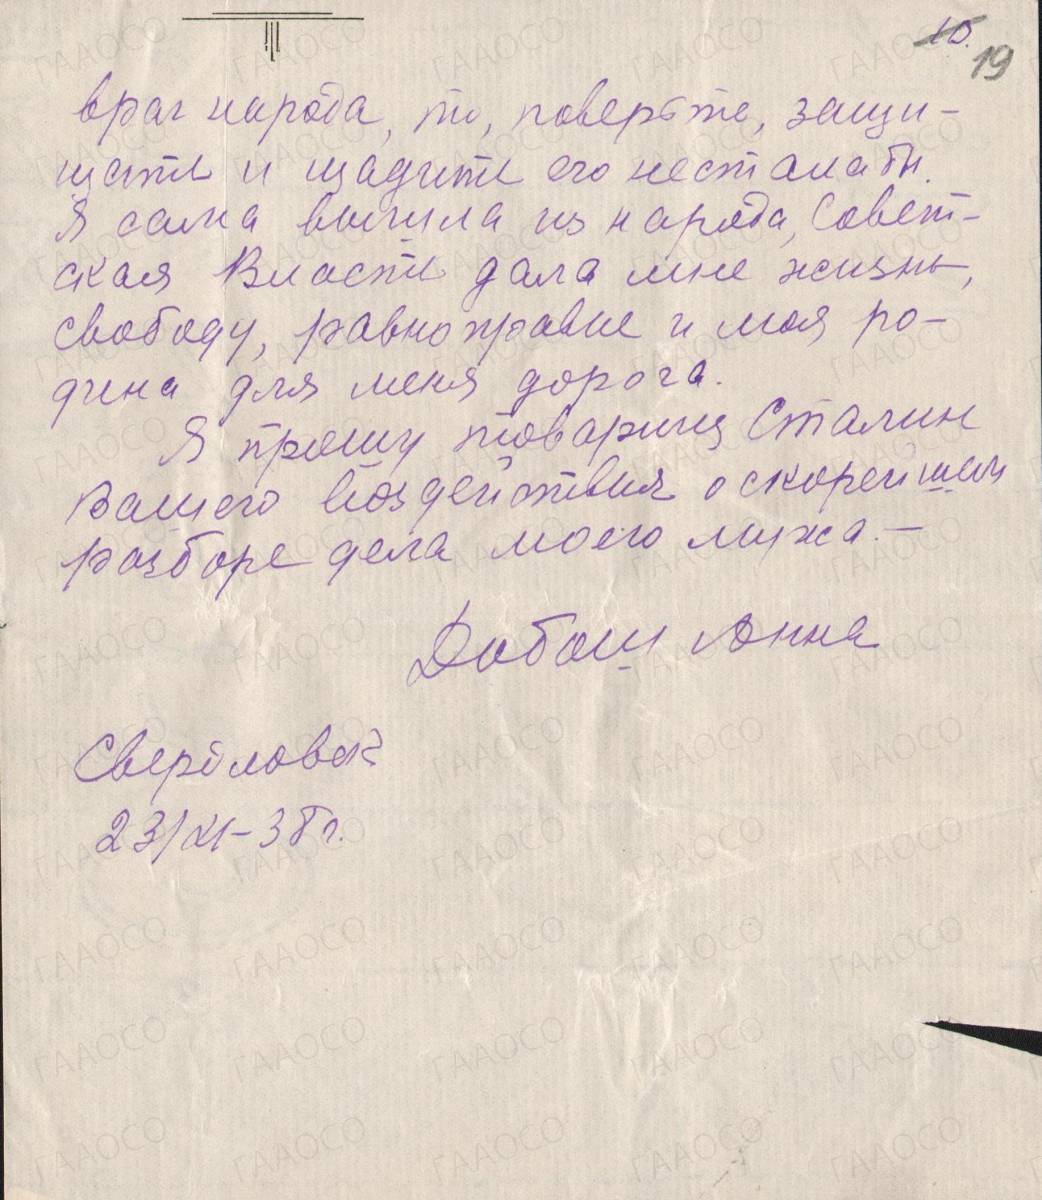 10.
19
враг народа, то, поверьте, защи-
щать и щадить его не стала бы.
Я сама вышла из народа, Совет-
ская Власть дала мне жизнь,
свободу, равноправие и моя ро-
дина для меня дорога.
Я прошу товарищ Сталин
Вашего воздействия о скорейшем
разборе дела моего мужа. —
Добош Анна
Свердловск
23/XI-38г.
ГААОСО